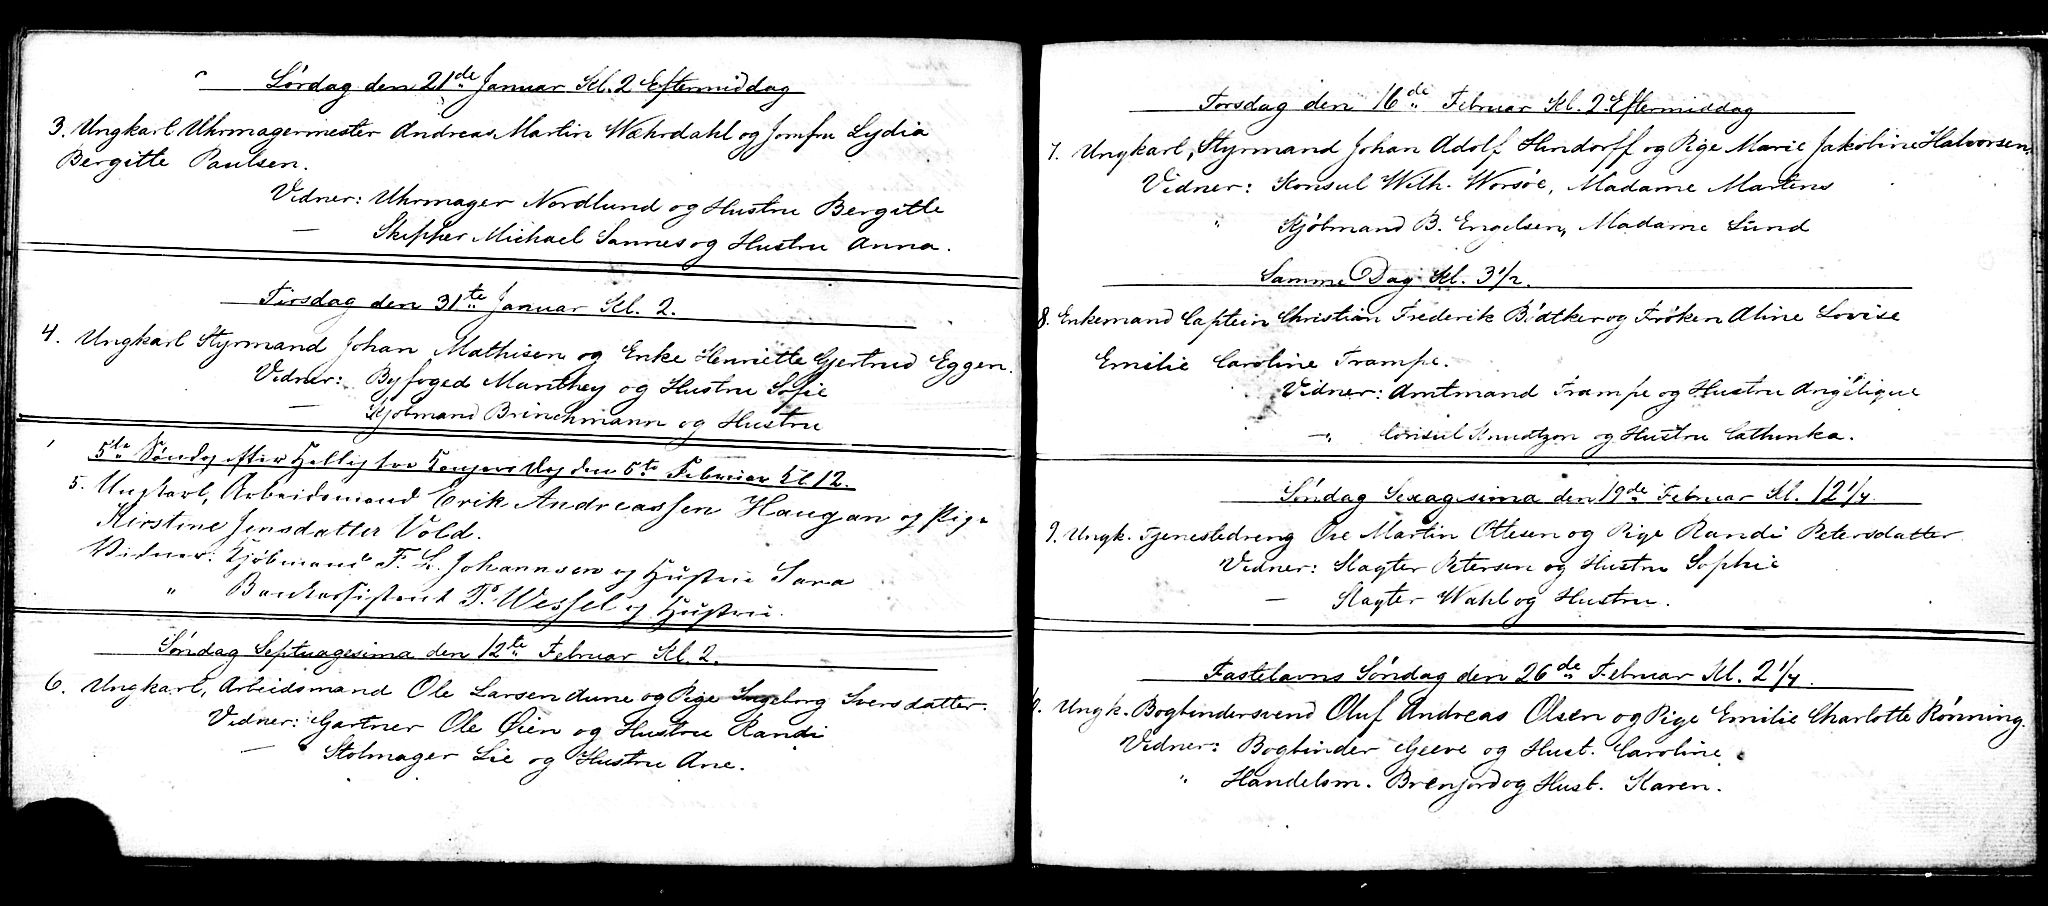 Lördag den 21de Januar Kl. 2 Eftermiddag
3. Ungkarl Uhrmagermester Andreas Martin Wæhrdahl og Jomfru Lydia
Bergitte Paulsen.
Vidner: Uhrmager Nordlund og Hustru Bergitte
— Skipper Michael Sannes og Hustru Anna.
Tirsdag den 31te Januar Kl. 2.
4. Ungkarl Styrmand Johan Mathisen og Enke Henriette Gjertrud Eggen.
Vidner: Byfoged Manthey og Hustru Sofie
— Kjöbmand Brinchmann og Hustru
5te Söndag efter Hellig tre Kongers Dag den 5te Februar Kl 12.
5. Ungkarl, Arbeidsmand Erik Andreassen Haugan og Pige
Kirstine Jensdatter Vold.
Vidner: Kjöbmand F. L. Johannsen og Hustru Sara
" Bankassistent P. Wessel og Hustru.
Söndag Septuagesima den 12te Februar Kl. 2.
6. Ungkarl, Arbeidsmand Ole Larsen Aune og Pige Ingeborg Iversdatter.
Vidner: Gartner Ole Öien og Hustru Randi
— Stolmager Lie og Hustru Ane.
Torsdag den 16de Februar Kl. 2 Eftermiddag
7. Ungkarl, Styrmand Johan Adolf Hindorff og Pige Marie Jakobine Halvorsen.
Vidner: Konsul Wilh. Worsöe, Madame Martens
" Kjöbmand B. Engelsen, Madame Lund
Samme Dag Kl. 3 1/2.
8. Enkemand Captein Christian Frederik Bödtker og Fröken Aline Lovise
Emilie Caroline Trampe.
Vidner: Amtmand Trampe og Hustru Angélique
—"— Consul Knudtzon og Hustru Cathinka.
Söndag Sexagesima den 19de Februar Kl. 12 1/4.
9. Ungk. Tjenestedreng Ole Martin Ottesen og Pige Randi Petersdatter
Vidner: Slagter Petersen og Hustru Sophie
— Slagter Wahl og Hustru.
Fastelavns Söndag den 26de Februar Kl. 2 1/4.
Ungk. Bogbindersvend Oluf Andreas Olsen og Pige Emilie Charlotte Rönning.
Vidner: Bogbinder Greve og Hust. Caroline
" Handelsm. Brenjord og Hust. Karen.